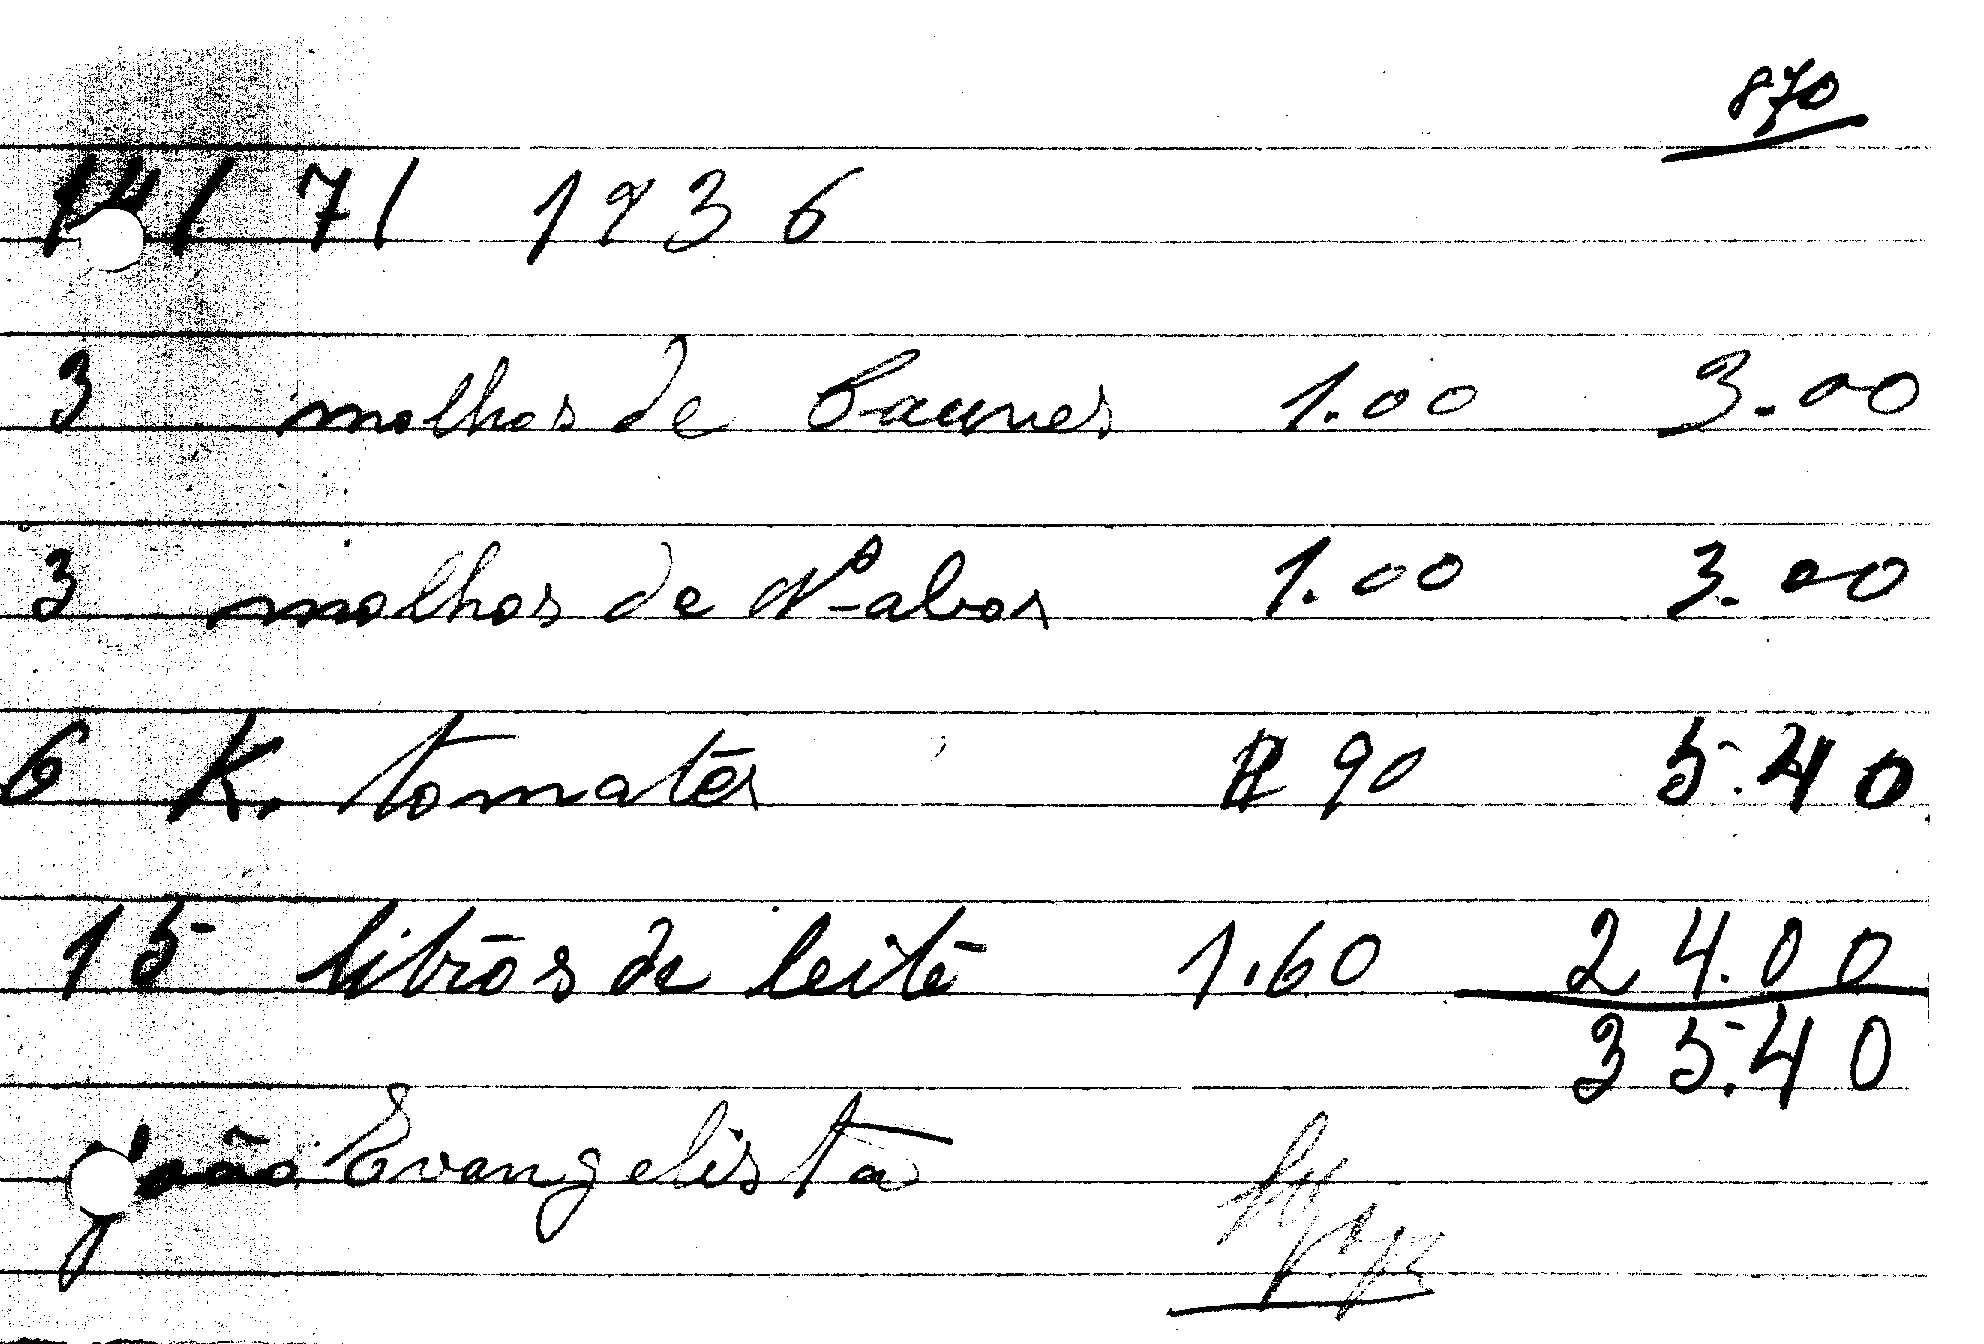 870
14/ 7/ 1936
3 molhos de 1.00 3.00
3 molhos de N-abos 1.00 3.00
6 K. tomates 90 5.40
15 litros de leite 1.60 24.00
35.40
João Evangelista